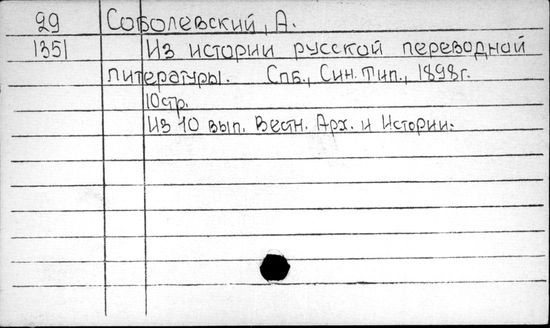 29 Соболевский, А.
1351 Из истории русской переводной
литературы. Спб., Син. тип., 1898г.
10стр.
Из 10 вып. Вестн. Арх. и Истории.